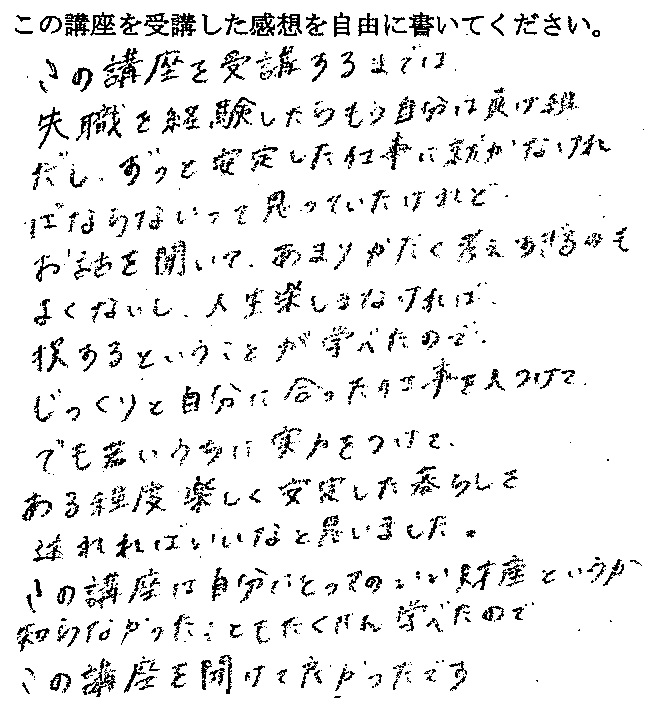 この講座を受講した感想を自由に書いてください。
この講座を受講するまでは、
失職を経験したらもう自分は負け組
だし、ずっと安定した仕事に就かなけれ
ばならないって思っていたけれど、
お話を聞いて、あまりかたく考えすぎるのも
よくないし、人生楽しまなければ、
損するということが学べたので、
じっくりと自分に合った仕事を見つけて、
でも若いうちに実力をつけて、
ある程度楽しく安定した暮らしを
送れればいいなと思いました。
この講座は自分にとってのいい財産というか
知らなかったこともたくさん学べたので
この講座を聞けて良かったです